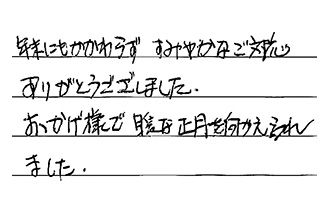 年末にもかかわらず すみやかなご対応
ありがとうござしました.
おかげ様で 暖な正月を向かえられ
ました.